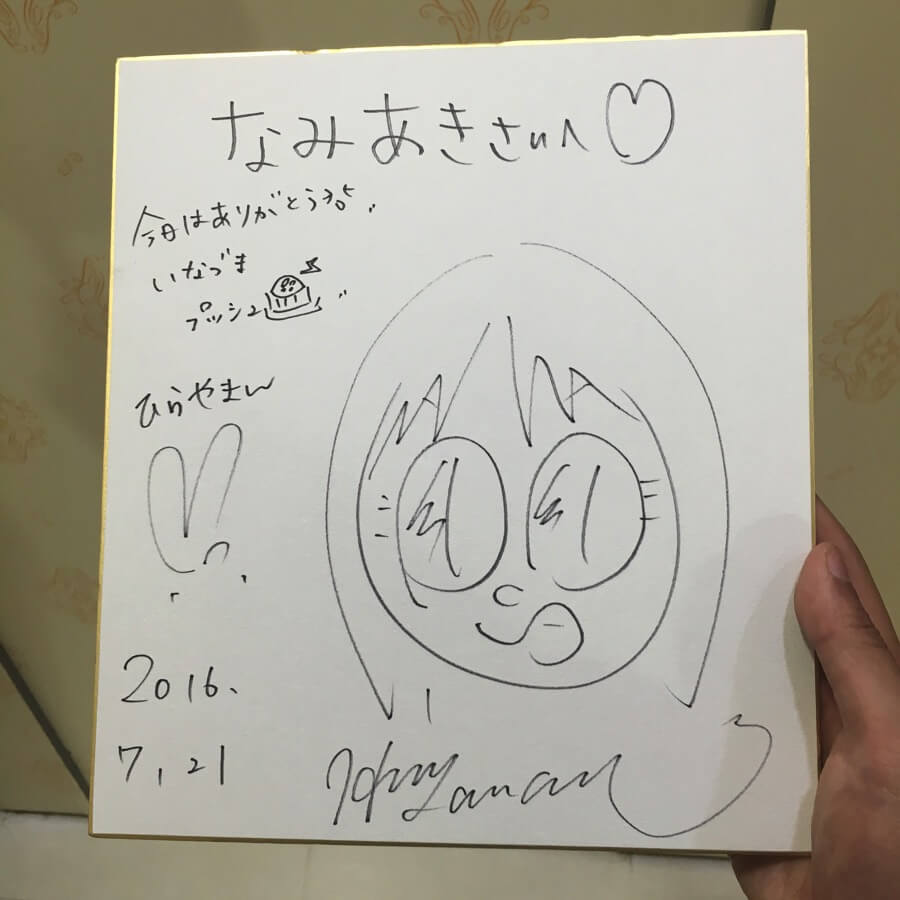 なみあきさんへ♡
今日はありがとう
いなづま
プッシュ
ひらやまん
2016.
7.21